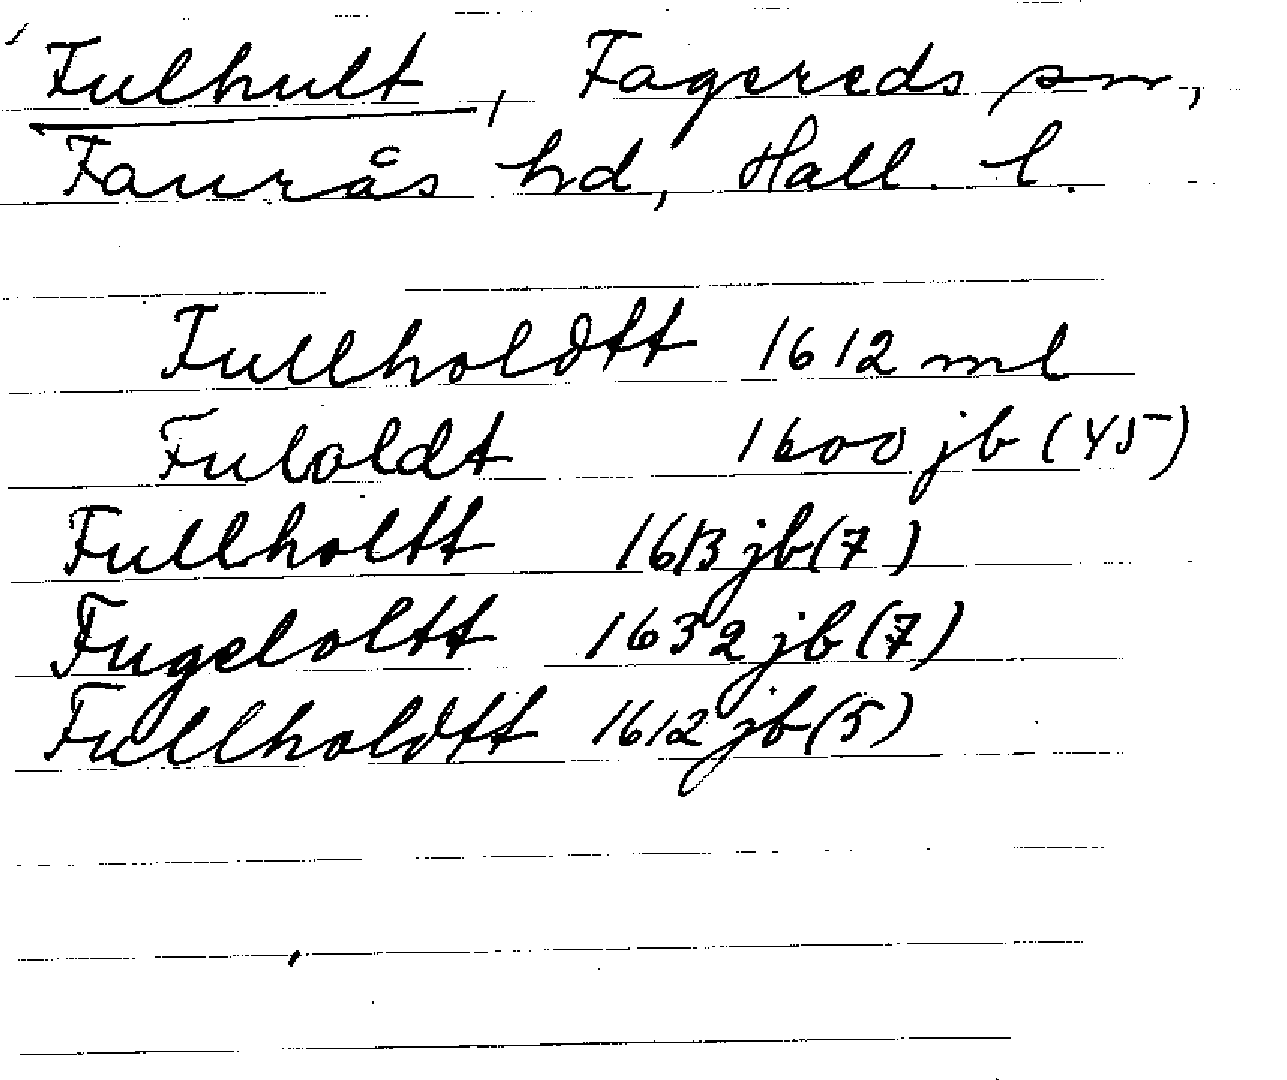 Fulhult, Fagereds sn,
Faurås hd, Hall. l.
Fullholdtt 1612 ml
Fuloldt 1600 jb (45)
Fullholtt 1613 jb (7)
Fugeloltt 1632 jb (7)
Fullholdtt 1612 jb (5)